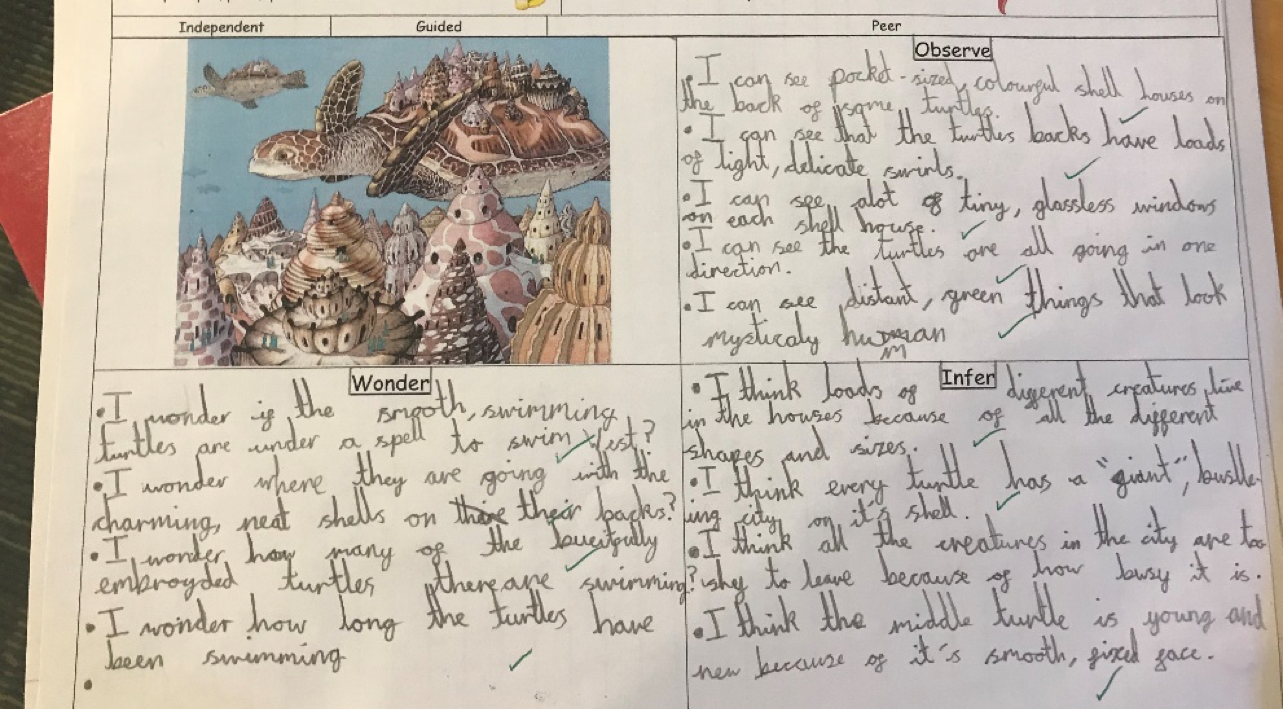 Independent
Guided
Peer
Observe
I can see pocket-sized, colourful shell houses on
the back of some turtles.
• I can see that the turtles backs have loads
of light, delicate swirls.
• I can see alot of tiny, glassless windows
on each shell house.
• I can see the turtles are all going in one
direction.
• I can see distant, green things that look
mysticaly human
m
Wonder
• I wonder if the smooth, swimming
turtles are under a spell to swim West?
• I wonder where they are going with the
charming, neat shells on their backs?
• I wonder how many of the bueitfully
embroyded turtles there are swimming?
• I wonder how long the turtles have
been swimming
•
Infer
• I think loads of different creatures live
in the houses because of all the different
shapes and sizes.
• I think every turtle has a "giant", bustle-
ing city on it's shell.
• I think all the creatures in the city are too
shy to leave because of how busy it is.
• I think the middle turtle is young and
new because of it's smooth, fixed face.